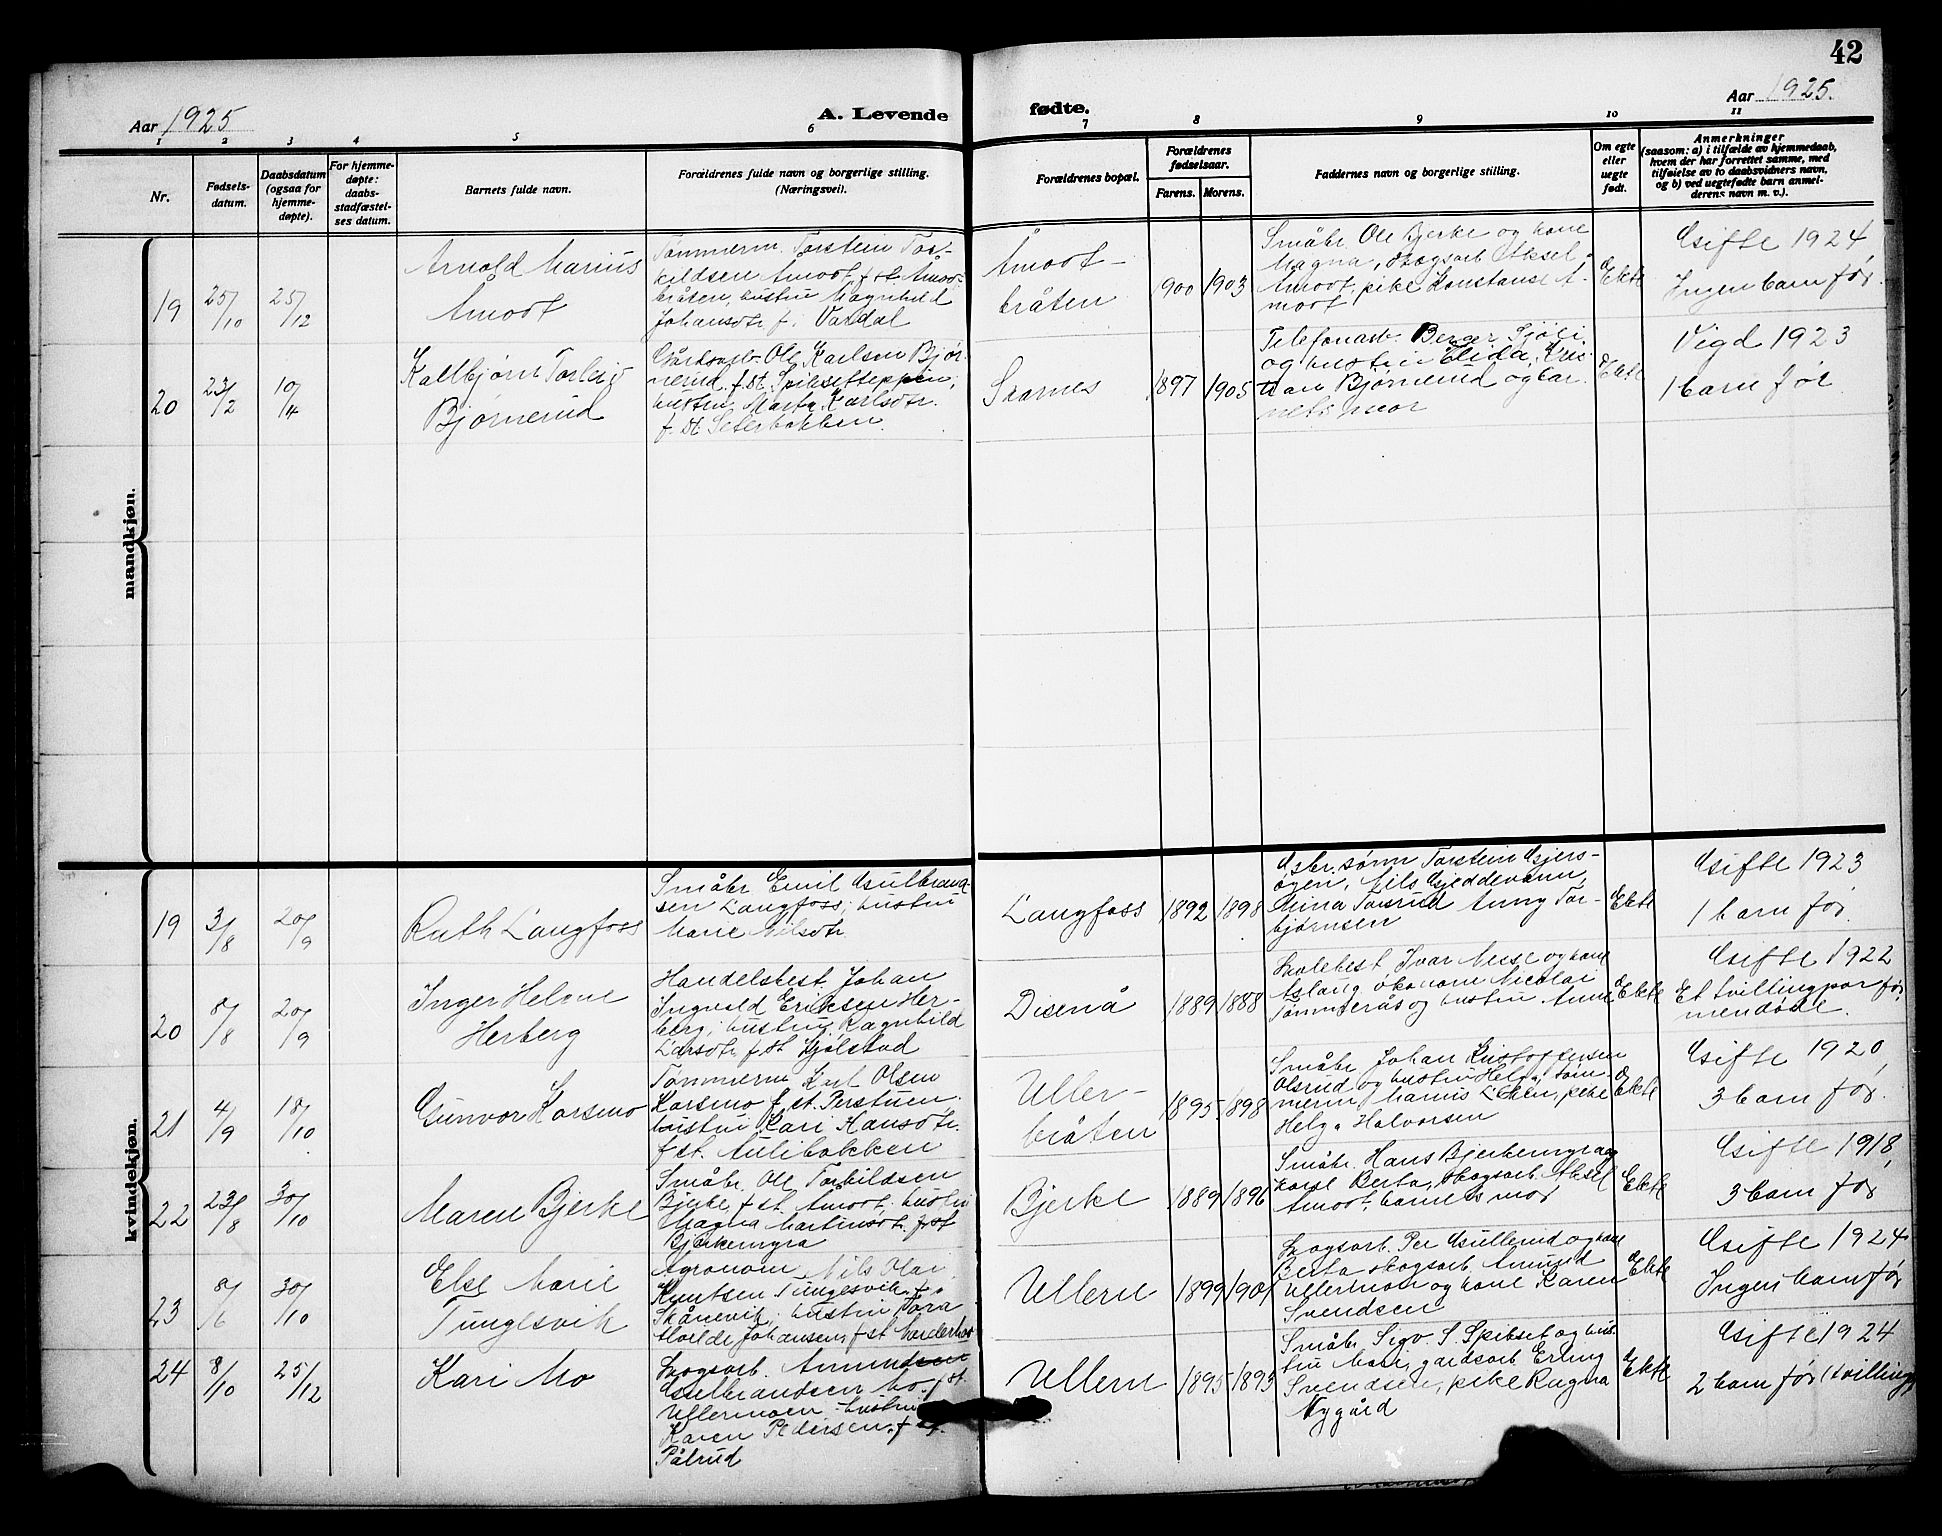 42
Aar 1925
A. Levende
fødte.
Aar 1925.
1 2 3 4 5 6 7 8 9 10 11
Nr.
Fødsels-
datum.
Daabsdatum
(ogsaa for
hjemme-
døpte).
For hjemme-
døpte:
daabs-
stadfæstel-
ses datum.
Barnets fulde navn.
Forældrenes fulde navn og borgerlige stilling.
(Næringsvei).
Forældrenes bopæl.
Forældrenes
fødselsaar.
Farens. Morens.
Faddernes navn og borgerlige stilling.
Om egte
eller
uegte
født.
Anmerkninger
(saasom: a) i tilfælde av hjemmedaab,
hvem der har forrettet samme, med
tilføielse av to daabsvidners navn,
og b) ved uegtefødte barn anmel-
derens navn m. v.).
mandkjøn.
19
25/10
25/12
Arnold Marius
Åmodt
Tømmerm. Torstein Tor-
kildsen Åmodt, f. st. Åmodt-
bråten, hustru Magnhild
Johansdtr f. i Vardal
Åmodt-
bråten
900
1903
Småbr. Ole Bjerke og kone
Magna, skogsarb. Aksel
Åmodt, pike Konstanse Å-
modt
Ekte
Gifte 1924
Ingen barn før.
20
23/2
10/4
Kallbjørn Torleif
Bjørnerud
Ole Karlsen Bjør-
nerud f. st. Spikseteppen,
hustru Marta Karlsdtr.
f. st. Seterbakken.
Skarnes
1897
1905
og hustru Elida, Kris-
tian Bjørnerud og bar-
nets mor
Ekte
Vigd 1923
1 barn før
kvindekjøn.
19
3/8
20/9
Ruth Langfoss
Småbr. Emil Gulbrand-
sen Langfoss, hustru
Marie Nilsdtr.
Langfoss
1892
1898
Gbr. sønn Torstein Gjers-
øgen, Nils Gjeddevann,
Mina Torsrud Anny Tor-
bjørnsen
Ekte
Gifte 1923
1 barn før.
20
8/8
20/9
Inger Helene
Herberg
Handelsbest. Johan
Ingvald Eriksen Her-
berg, hustru Ragnhild
Larsdtr f. st. Hjølstad
Disenå
1889
1888
Skolebest. Ivar Muse og kone
Aslaug, økonom Nicolai
Tømmerås og hustru Anne
Ekte
Gifte 1922
Et tvillingpar før,
men døde.
21
4/9
18/10
Gunvor Korsmo
Tømmerm. Karl Olsen
Korsmo f. st. Perstuen.
hustru Kari Hansdtr.
f. st. Aulibakken
Uller-
bråten
1895
1898
Småbr. Johan Kristoffersen
Olsrud og hustru Helga, tøm-
merm. Hans Lien, pike
Helga Halvorsen
Ekte
Gifte 1920
3 barn før.
22
23/8
30/10
Maren Bjerke
Småbr. Ole Torkildsen
Bjerke, f. st. Åmodt, hustru
Magna Martinsdt. f. st
Bjerkemyra
Bjerke
1889
1896
Småbr. Hans Bjerkemyra og
kone Berta, skogsarb. Aksel
Åmodt, barnets mor
Ekte
Gifte 1918,
3 barn før
23
8/6
30/10
Else Marie
Tungesvik
Agronom Nils Olai
Knutsen Tungesvik f. i
Skånevik, hustru Tora
Alvilde Johansen, f. st.
Ullern
1899
1901
Skogsarb. Per Gullerud og kone
Berta skogsarb. Amund
Ullernmoen og kone Karen
Svendsen
Ekte
Gifte 1924
Ingen barn før
24
8/10
25/12
Kari Mo
Skogsarb. Amundsen
Gulbrandsen Mo, f. st.
Ullernmoen hustru
Karen Pedersen. f. st.
Pålrud
Ullern
1895
1893
Småbr. Sigv. S. Spikset og hus-
tru Mari, gardsarb. Erling
Svendsen, pike Ragna
Nygård
Ekte
Gifte 1924
2 barn før (tvilling)